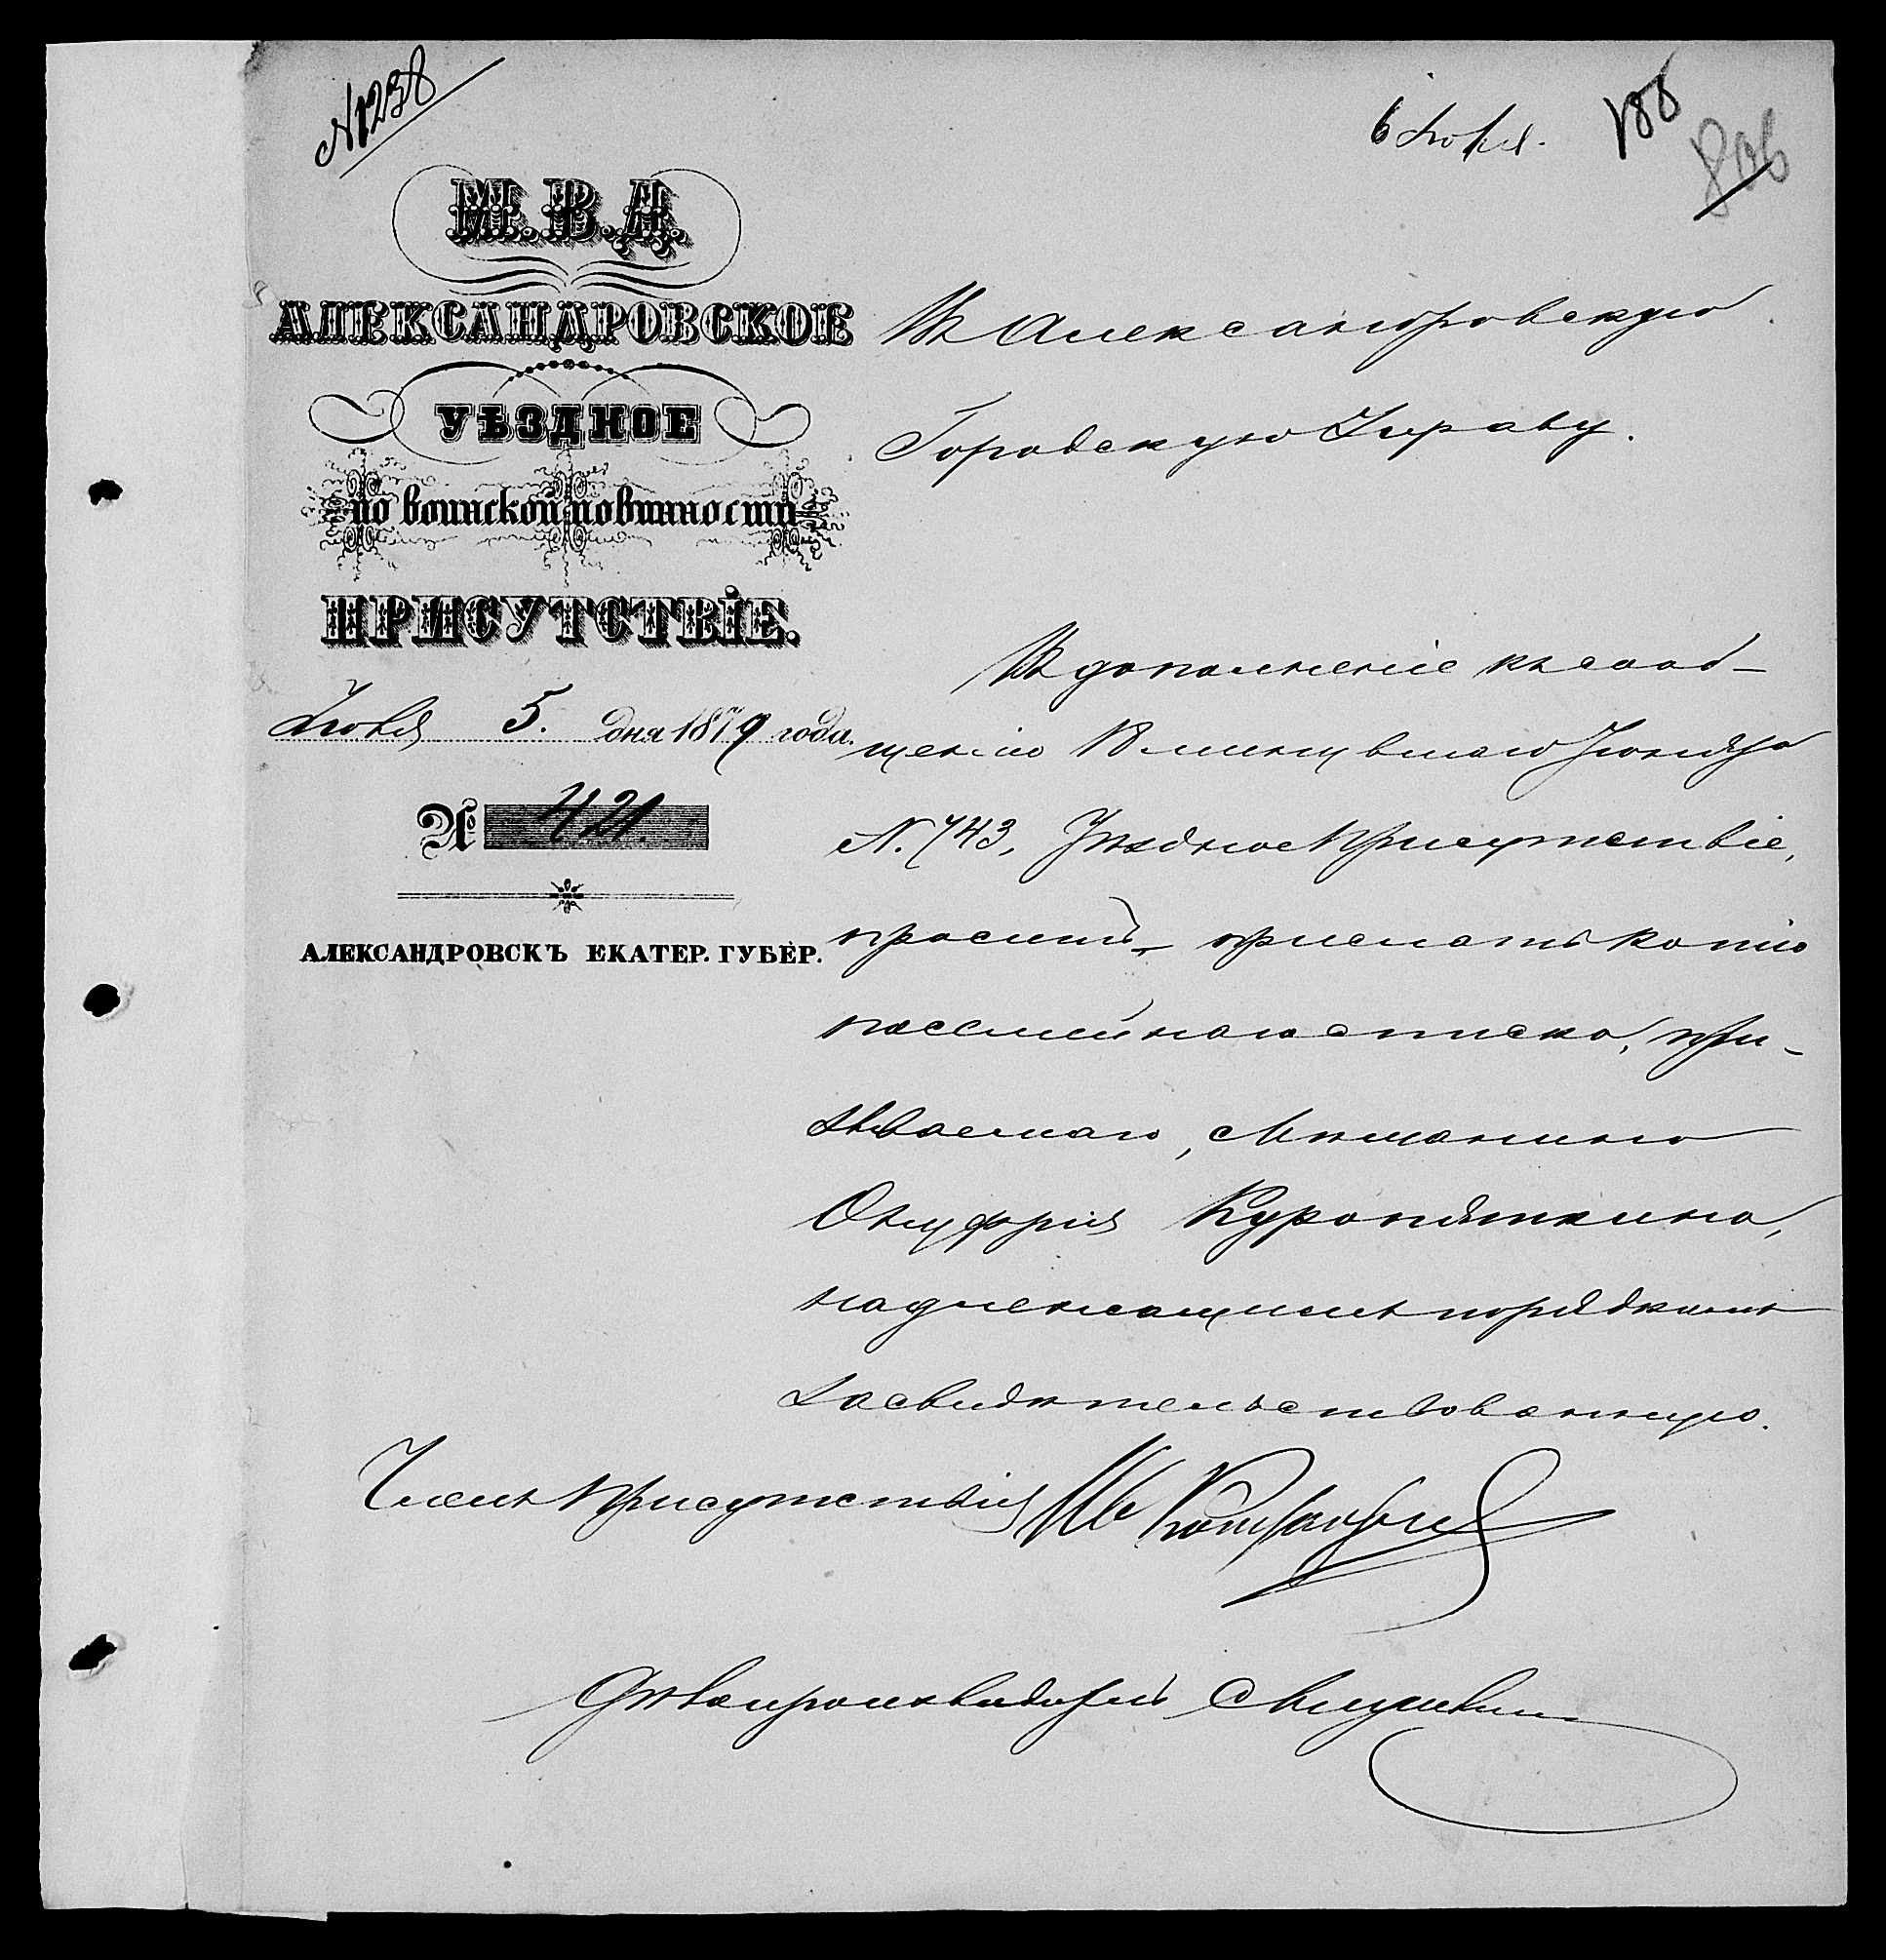 N 1238
6 Іюля.
188
806
М.В.Д.
АЛЕКСАНДРОВСКОЕ
УѢЗДНОЕ
по воинской повинности
ПРИСУТСТВІЕ.
Іюля 5. дня 1879 года.
№ 421.
АЛЕКСАНДРОВСКЪ ЕКАТЕР. ГУБЕР.
Въ Александровскую
Городскую Управу.
Въ дополненіе къ сооб-
щенію 18 минувшаго Іюня за
N. 743, Уѣздное Присутствіе,
проситъ прислать копію
посемейнаго списка, при-
зываемаго, Мѣщанина
Онуфрія Куропяткина,
надлежащимъ порядкомъ
засвидѣтельствованную.
Членъ Присутствія Ив
Дѣлопроизводитель